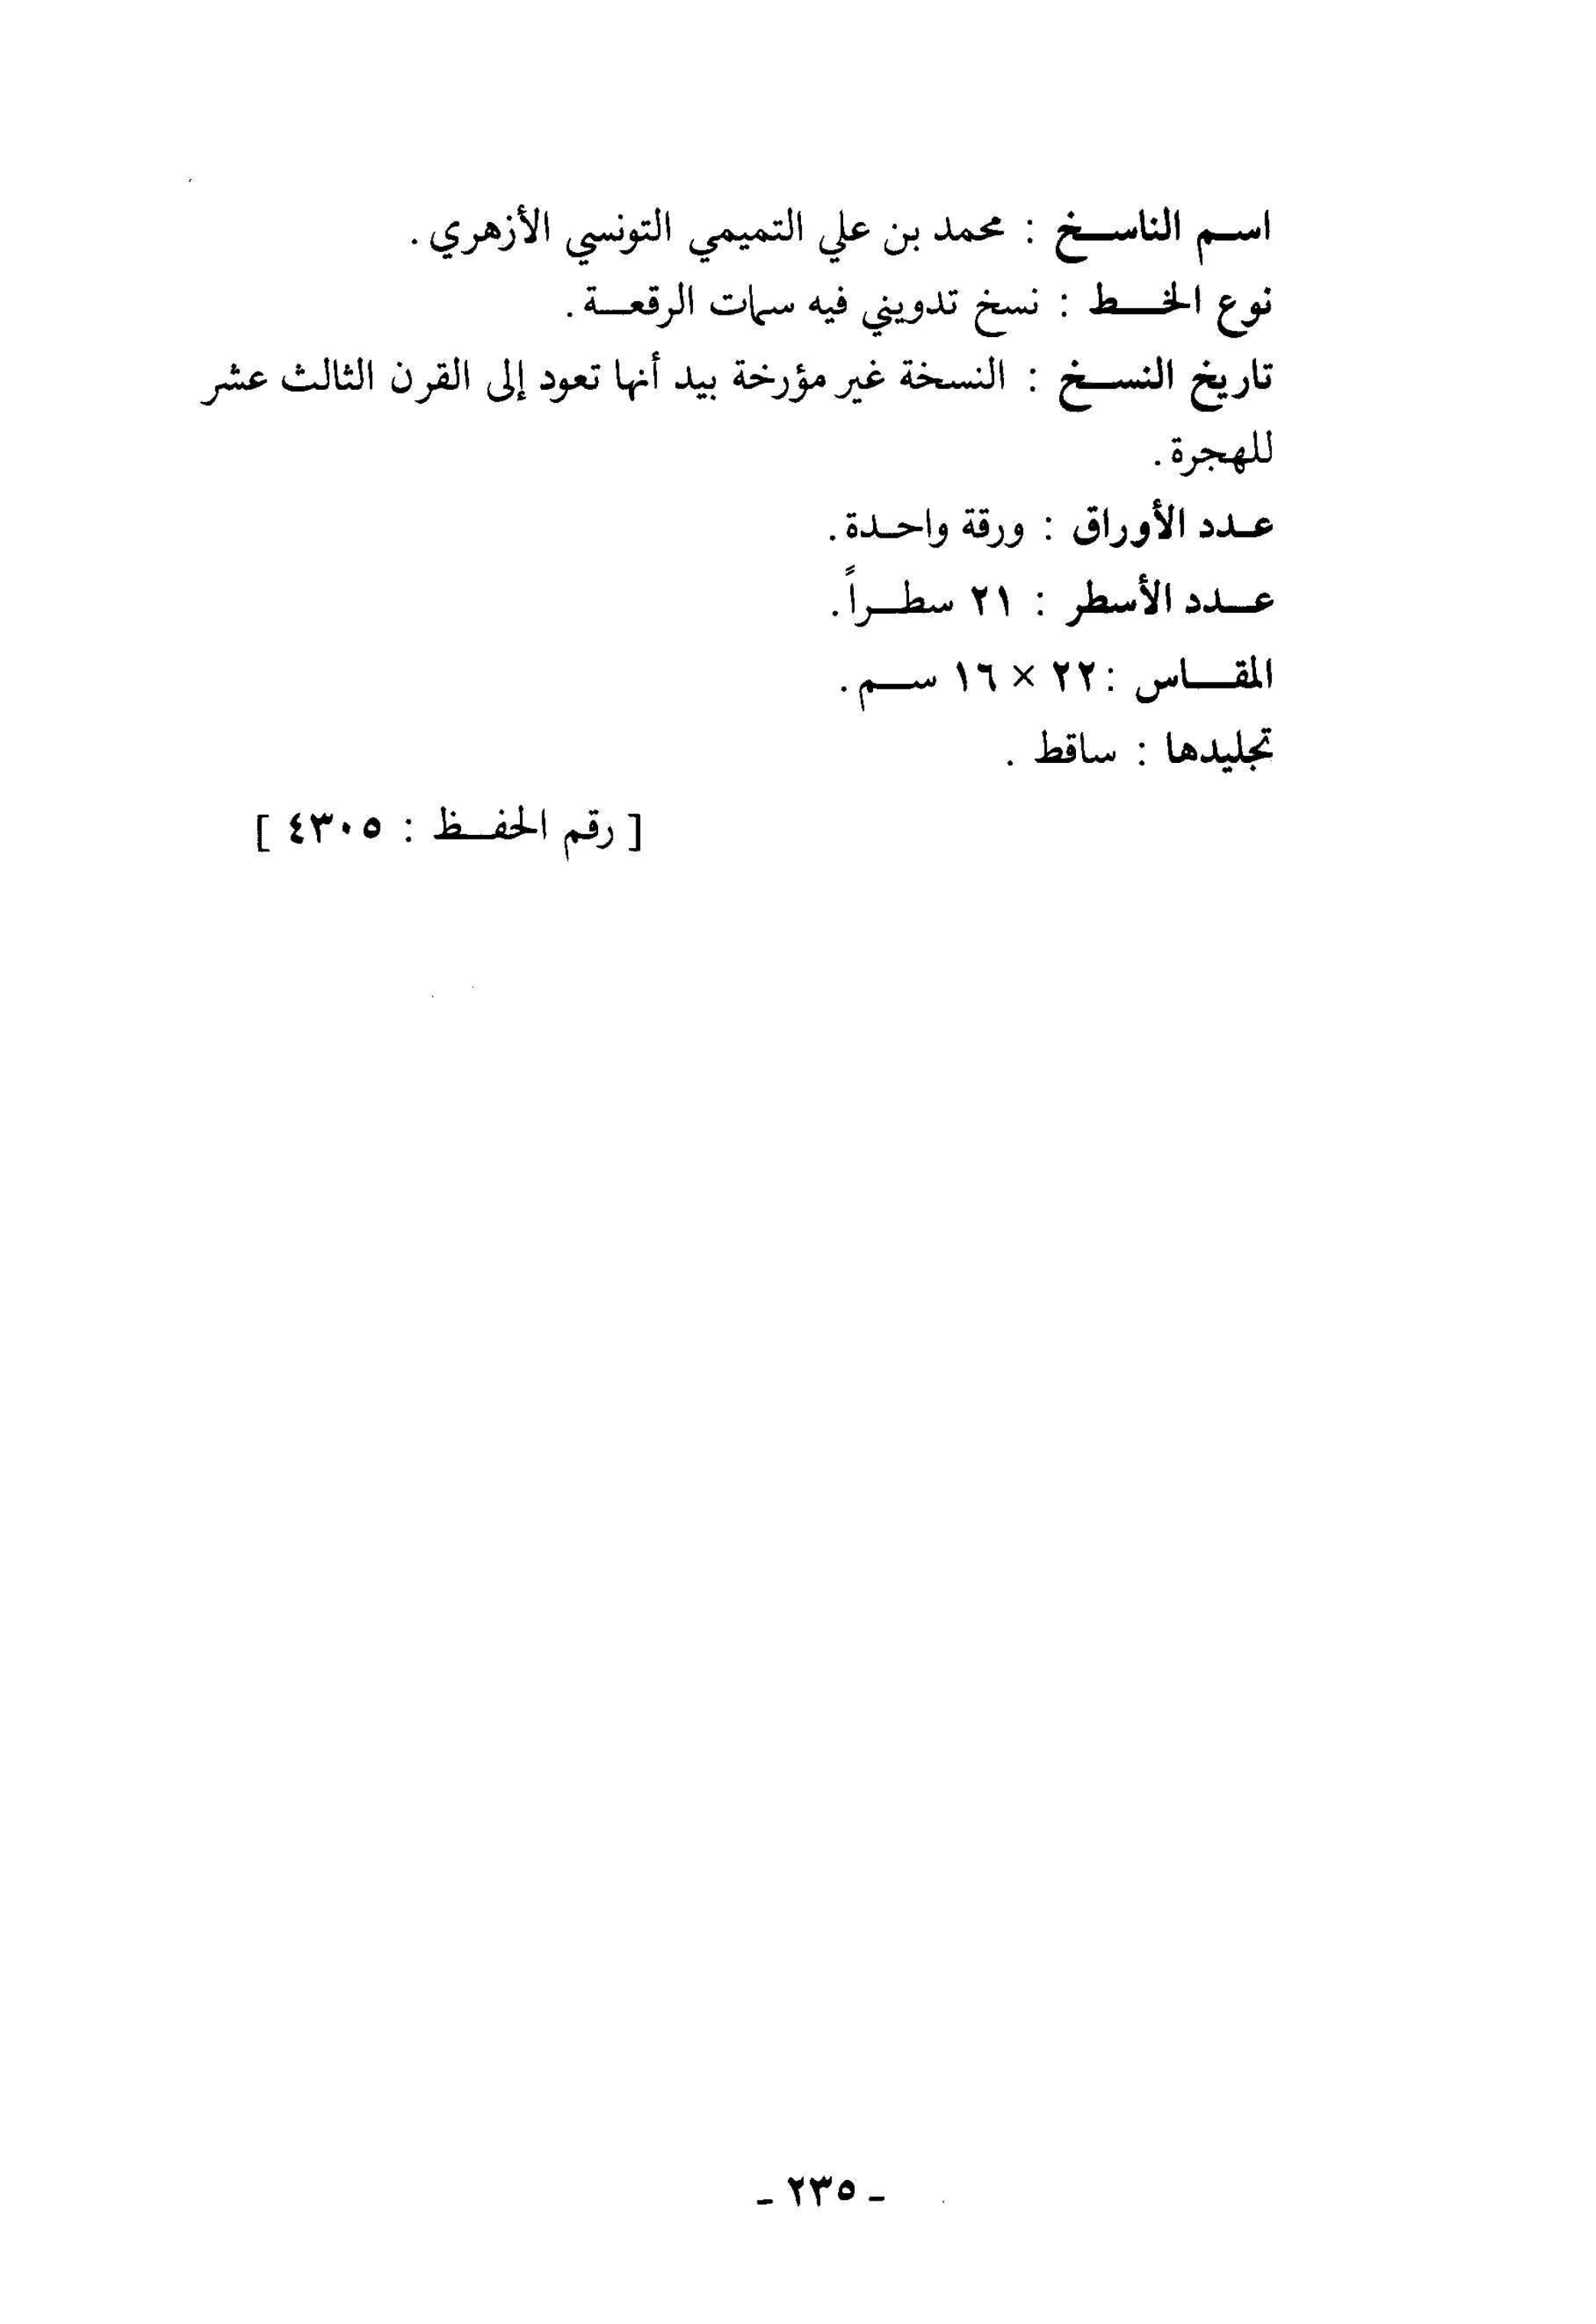 اسم الناسخ : محمد بن علي التميمي التونسي الأزهري .
نوع الخط : نسخ تدويني فيه سمات الرقعة .
تاريخ النسخ : النسخة غير مؤرخة بيد أنها تعود إلى القرن الثالث عشر
للهجرة .
عدد الأوراق : ورقة واحدة .
عدد الأسطر : ٢١ سطراً .
المقاس : ٢٢ × ١٦ سم .
تجليدها : ساقط .
[ رقم الحفظ : ٤٣٠٥ ]
- ٢٣٥ -